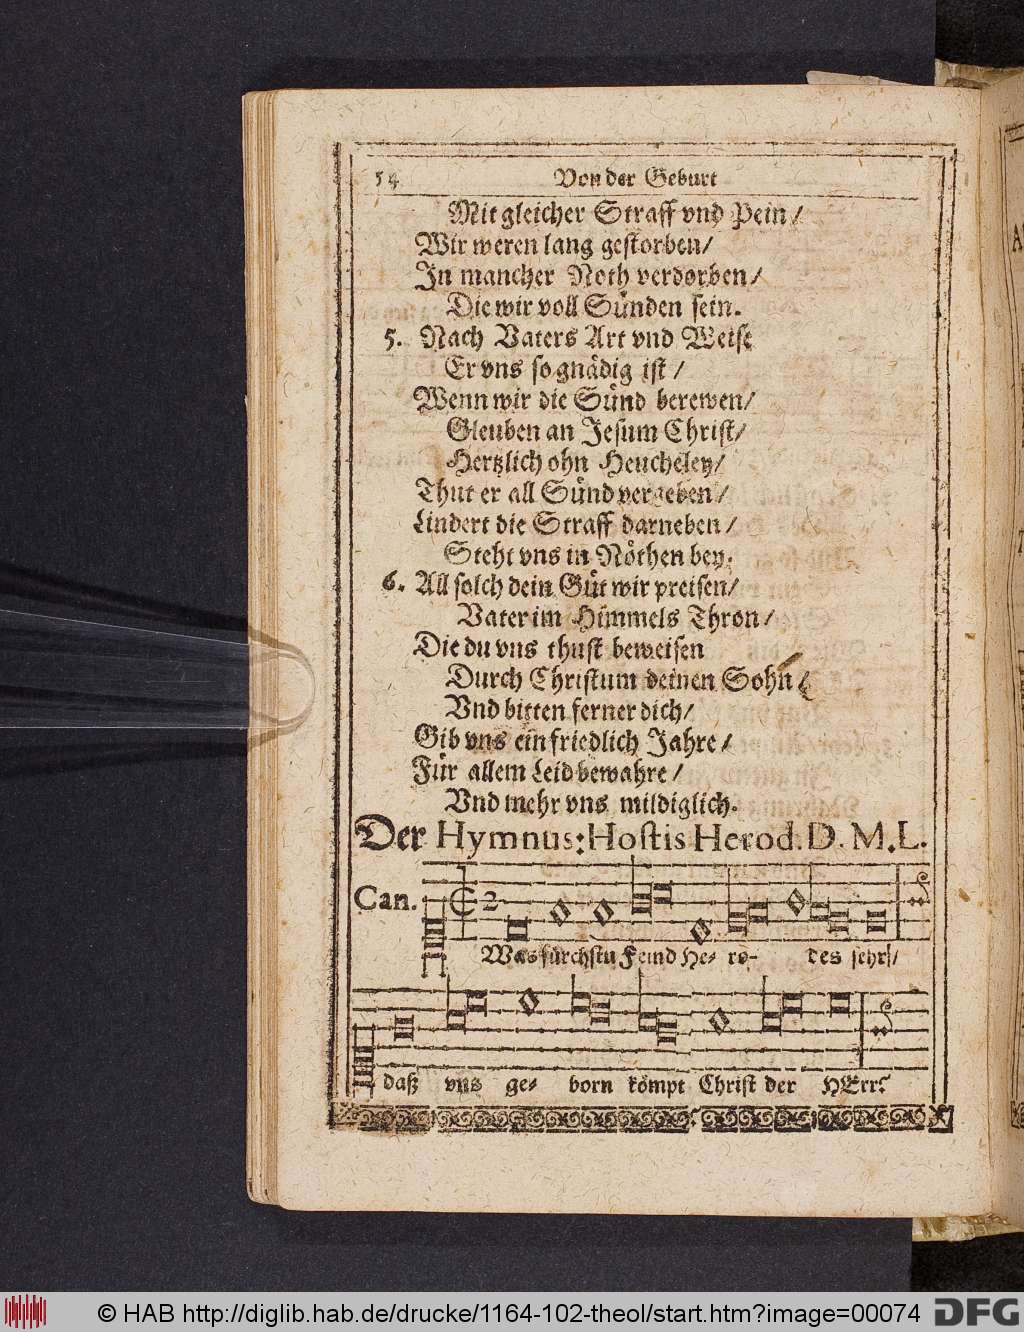 54 Von der Geburt
Mit gleicher Straff vnd Pein/
Wir weren lang gestorben/
In mancher Noth verdorben/
Die wir voll Sünden sein.
5. Nach Vaters Art vnd Weise
Er vns so gnädig ist /
Wenn wir die Sünd berewen/
Gleuben an Jesum Christ/
Hertzlich ohn Heucheley/
Thut er all Sünd vergeben/
Lindert die Straff darneben/
Steht vns in Nöthen bey.
6. All solch dein Güt wir preisen/
Vater im Himmels Thron/
Die du vns thust beweisen
Durch Christum deinen Sohn/
Vnd bitten ferner dich/
Gib vns ein friedlich Jahre/
Für allem Leid bewahre/
Vnd mehr vns mildiglich.
Der Hymnus: Hostis Herod. D. M. L.
Can.
Was fürchstu Feind He- ro- des sehr/
daß vns ge- born kömpt Christ der HErr?
© HAB http://diglib.hab.de/drucke/1164-102-theol/start.htm?image=00074 DFG